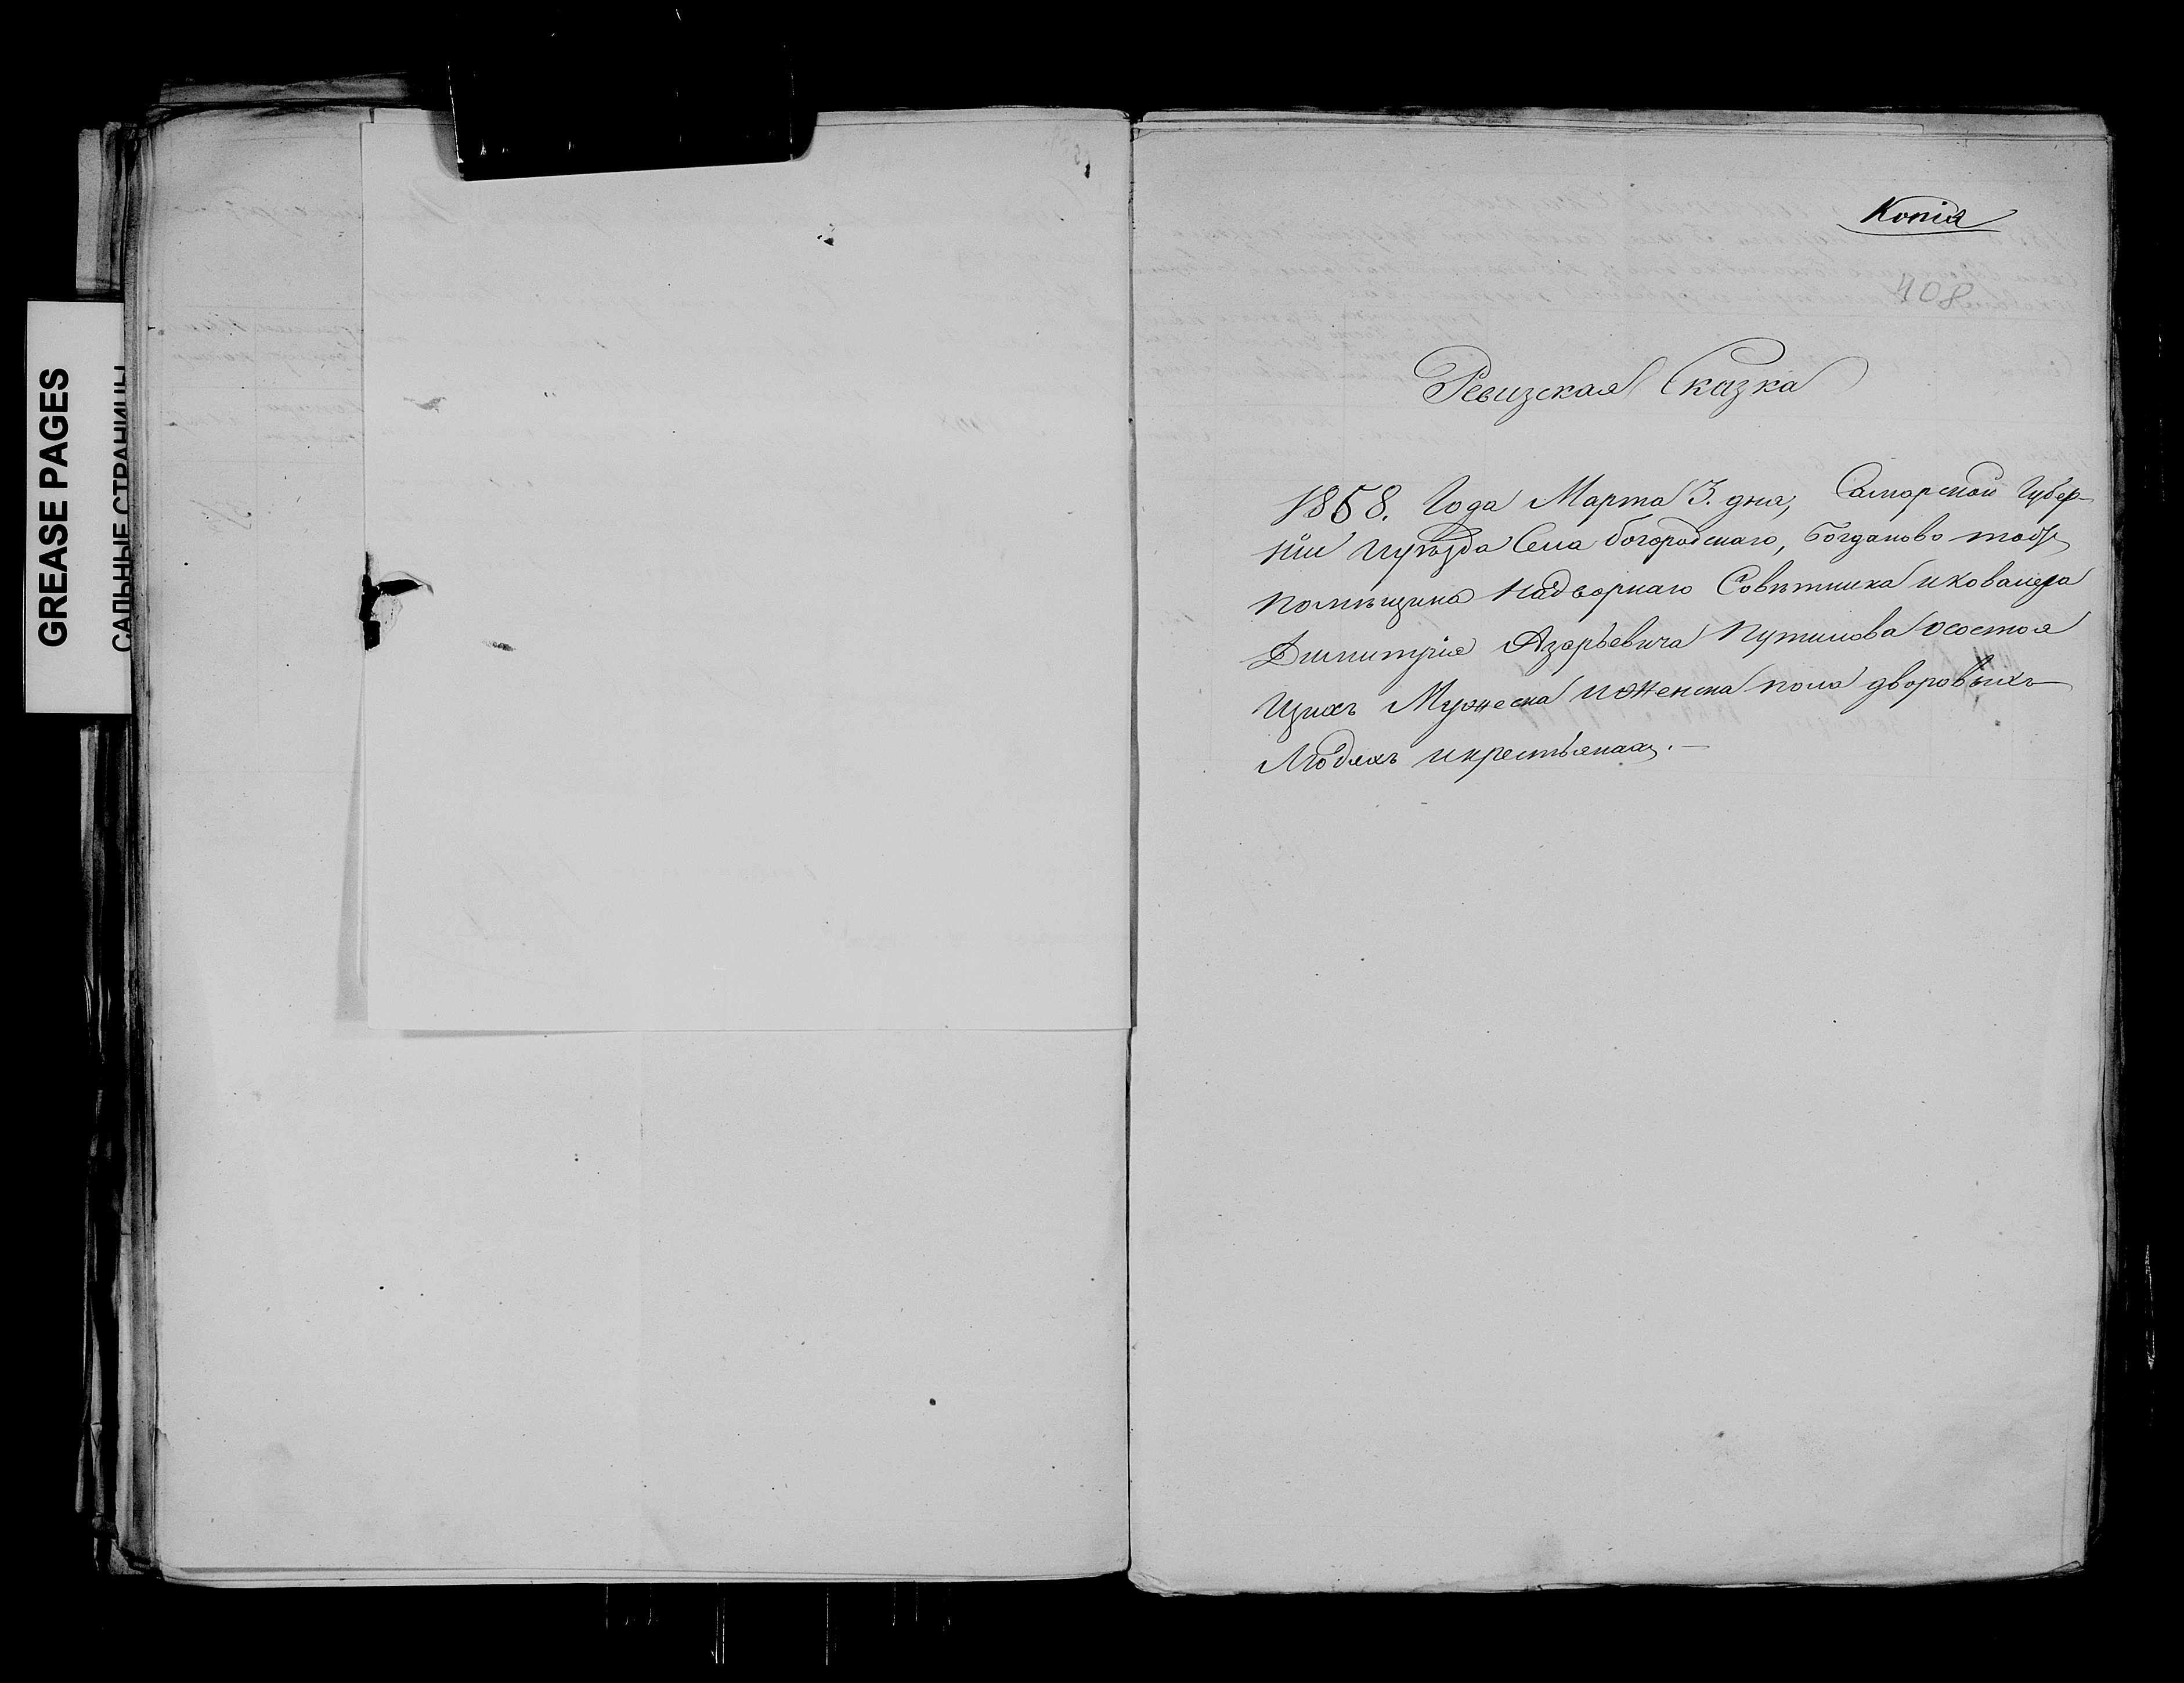 GREASE PAGES
САЛЬНЫЕ СТРАНИЦЫ
Копія
408
Ревизская Сказка
1858. Года Марта 3. дня, Самарской Губер-
ніи иуѣзда Села богородскаго, Богданово тожъ
помѣщика Надворнаго Совѣтника иковалера
Димитрія Азарьевича Путилова осостоя
щихъ Мужеска иженска пола дворовыхъ
Людяхъ икрестьянахъ.—